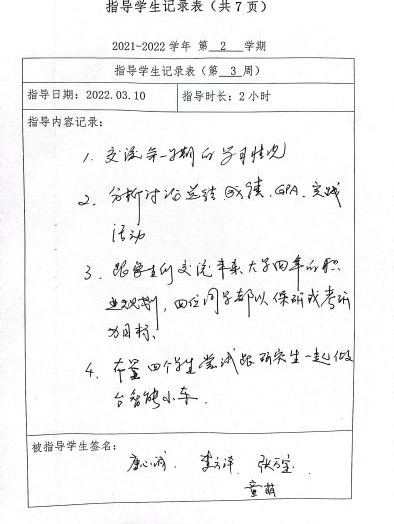 指导学生记录表（共 7 页）
2021-2022 学年 第 2 学期
指导学生记录表（第 3 周）
指导日期：2022.03.10 指导时长：2 小时
指导内容记录：
1. 交流第一学期的学习情况
2. 分析讨论总结成绩、GPA、实践
活动
3. 跟学生们交流未来大学四年的职
业规划，四位同学都以保研或考研
为目标、
4. 布置四个学生尝试跟研究生一起做
台智能小车.
被指导学生签名：
童萌